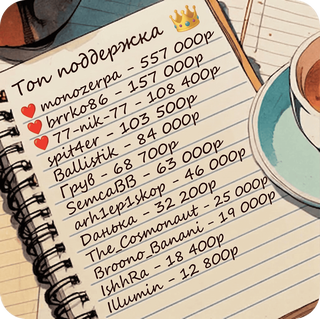 Топ поддержка 👑
❤️ monozerpa - 557 000р
❤️ brrko86 - 157 000р
❤️ 77-nik-77 - 108 400р
spit4er - 103 500р
Ballistik - 84 000р
Грув - 68 700р
SemcaBB - 63 000р
arh1ep1skop - 46 000р
Данька - 32 200р
The_Cosmonaut - 25 000р
Broono_Banani - 19 000р
IshhRa - 18 400р
Illumin - 12 800р